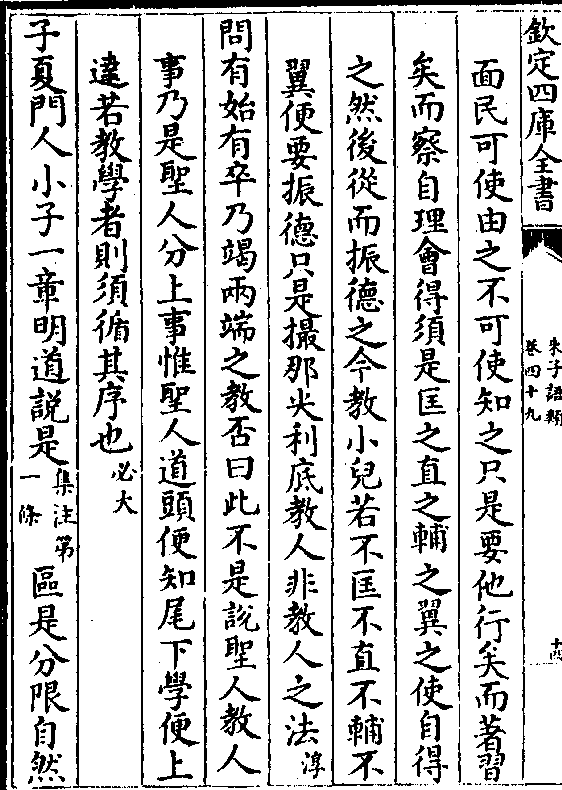 欽定四庫全書
朱子語類
卷四十九
十四
面民可使由之不可使知之只是要他行矣而著習
矣而察自理會得須是匡之直之輔之翼之使自得
之然後從而振德之今教小兒若不匡不直不輔不
翼便要振德只是撮那尖利底教人非教人之法淳
問有始有卒乃竭兩端之教否曰此不是說聖人教人
事乃是聖人分上事惟聖人道頭便知尾下學便上
達若教學者則須循其序也必大
子夏門人小子一章明道說是集注第一條區是分限自然